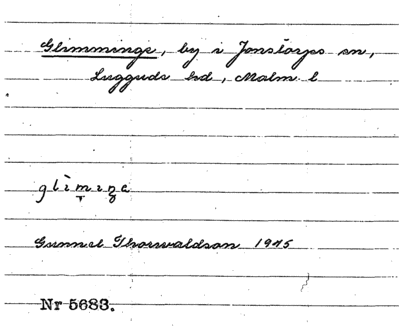 Glimminge, by i Jonstorps sn,
Luggude hd, Malm l
Gunnel Thorwaldson 1945
Nr 5683.